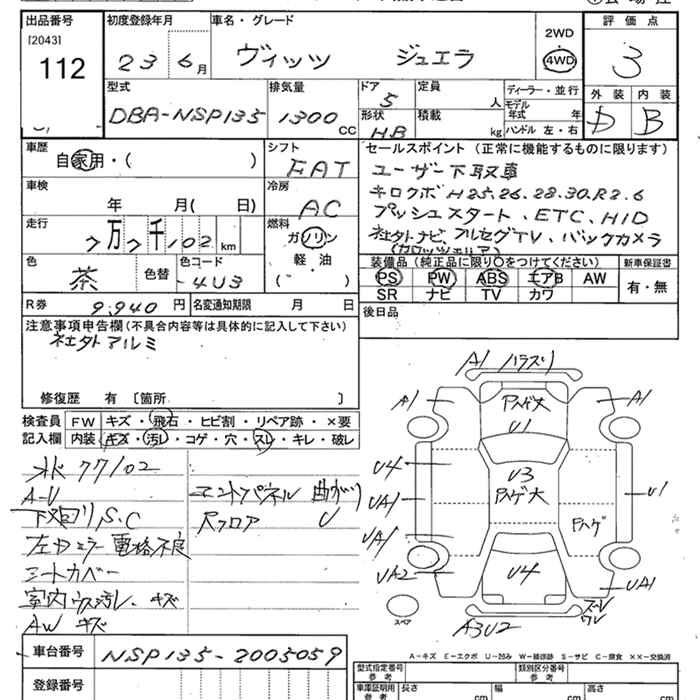 出品番号 初度登録年月 車名・グレード 評価点
[2043] 2WD
112 23 6月 ヴィッツ ジュエラ 4WD 3
型式 排気量 ドア 定員 ディーラー・並行 外装 内装
DBA-NSP135 1300 CC 5 人 モデル年式 年
形状 HB 積載 kg ハンドル 左・右 D B
車歴 シフト セールスポイント(正常に機能するものに限ります)
自家用・( ) FAT ユーザー下取車
車検 冷房 キロクボ H25.26.28.30.R2.6
年 月( 日) AC プッシュスタート、ETC、HID
走行 燃料 社外ナビ、フルセグTV、バックカメラ
7万7千102km ガソリン (カロッツェリア)
色 色替 色コード 軽・油 装備品(純正品に限り○をつけてください) 新車保証書
茶 4U3 ( ) PS PW ABS エアB AW 有・無
SR ナビ TV カワ
R券 9.940円 名変通知期限 月 日 後日品
注意事項申告欄(不具合内容等は具体的に記入して下さい)
社外アルミ
修復歴 有 〔箇所 〕
検査員 FW キズ・飛石・ヒビ割・リペア跡・×要
記入欄 内装 キズ・汚レ・コゲ・穴・スレ・キレ・破レ
77102
A-U エンドパネル 曲がり
下回りS.C Rフロア U
左ドアミラー電格不良
シートカバー
室内ウス汚レ、キズ
AW キズ
A1 バラスリ
A1 Pハゲ大 A1
U1
U4 U3
UA1 Pハゲ大 U1
UA1 Pハゲ
UA2 U4 UA1
A3U2
スペア
A-キズ E-エクボ U-凹み W-補修跡 S-サビ C-腐食 XX-交換済
車台番号 NSP135-2005059
登録番号
型式指定番号 参考 類別区分番号 参考
車庫証明用 参考 長さ cm 幅 cm 高さ cm